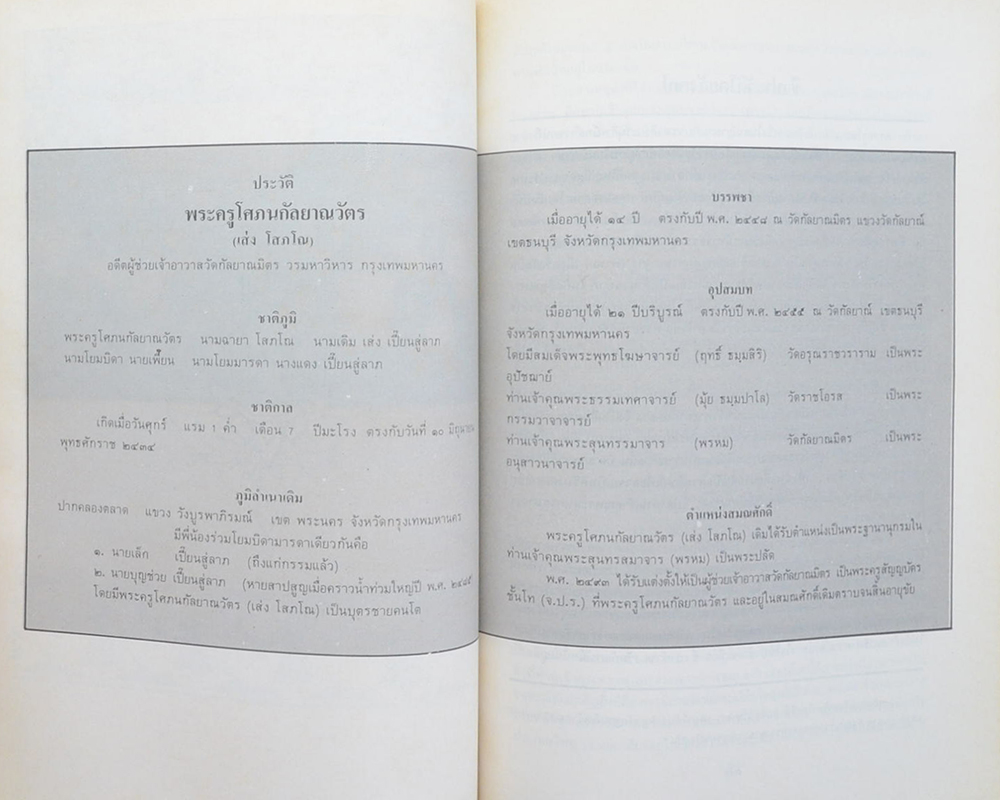 ประวัติ
พระครูโศภนกัลยาณวัตร
(เส่ง โสภโณ)
อดีตผู้ช่วยเจ้าอาวาสวัดกัลยาณมิตร วรมหาวิหาร กรุงเทพมหานคร
ชาติภูมิ
พระครูโศภนกัลยาณวัตร นามฉายา โสภโณ นามเดิม เส่ง เปี๊ยนสู่ลาภ
นามโยมบิดา นายเพี้ยน นามโยมมารดา นางแดง เปี๊ยนสู่ลาภ
ชาติกาล
เกิดเมื่อวันศุกร์ แรม 1 ค่ำ เดือน 7 ปีมะโรง ตรงกับวันที่ ๑๐ มิถุนายน
พุทธศักราช ๒๔๓๔
ภูมิลำเนาเดิม
ปากคลองตลาด แขวง วังบูรพาภิรมณ์ เขต พระนคร จังหวัดกรุงเทพมหานคร
มีพี่น้องร่วมโยมบิดามารดาเดียวกันคือ
๑. นายเล็ก เปี๊ยนสู่ลาภ (ถึงแก่กรรมแล้ว)
๒. นายบุญช่วย เปี๊ยนสู่ลาภ (หายสาปสูญเมื่อคราวน้ำท่วมใหญ่ปี พ.ศ. ๒๔๘๕
โดยมีพระครูโศภนกัลยาณวัตร (เส่ง โสภโณ) เป็นบุตรชายคนโต
บรรพชา
เมื่ออายุได้ ๑๔ ปี ตรงกับปี พ.ศ. ๒๔๔๘ ณ วัดกัลยาณมิตร แขวงวัดกัลยาณ์
เขตธนบุรี จังหวัดกรุงเทพมหานคร
อุปสมบท
เมื่ออายุได้ ๒๑ ปีบริบูรณ์ ตรงกับปี พ.ศ. ๒๔๕๕ ณ วัดกัลยาณ์ เขตธนบุรี
จังหวัดกรุงเทพมหานคร
โดยมีสมเด็จพระพุทธโฆษาจารย์ (ฤทธิ์ ธมฺมสิริ) วัดอรุณราชวราราม เป็นพระ
อุปัชฌาย์
ท่านเจ้าคุณพระธรรมเทศาจารย์ (มุ้ย ธมฺมปาโล) วัดราชโอรส เป็นพระ
กรรมวาจาจารย์
ท่านเจ้าคุณพระสุนทรรมาจาร (พรหม) วัดกัลยาณมิตร เป็นพระ
อนุสาวนาจารย์
ตำแหน่งสมณศักดิ์
พระครูโศภนกัลยาณวัตร (เส่ง โสภโณ) เดิมได้รับตำแหน่งเป็นพระฐานานุกรมใน
ท่านเจ้าคุณพระสุนทรสมาจาร (พรหม) เป็นพระปลัด
พ.ศ. ๒๔๙๓ ได้รับแต่งตั้งให้เป็นผู้ช่วยเจ้าอาวาสวัดกัลยาณมิตร เป็นพระครูสัญญบัตร
ชั้นโท (จ.ป.ร.) ที่พระครูโศภนกัลยาณวัตร และอยู่ในสมณศักดิ์เดิมตราบจนสิ้นอายุขัย